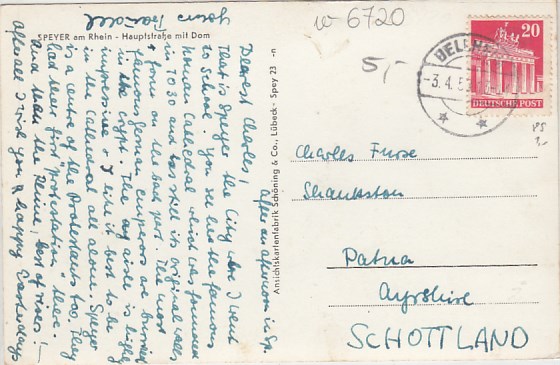 SPEYER am Rhein - Hauptstraße mit Dom
w 6720
5,-
-3.4.5
20
DEUTSCHE POST
After an afternoon in Sp.
Dearest Charles!
That is Speyer the City where I went
to school. You see here the famous
Roman Cathedral which was founded
in 1030 and has still its original walls
& form on the back part. The most
famous german emperors are burried
in the crypt. The is highly
impressive & I like it best to be
in the Cathedral all alone. Speyer
is a centre of the Protestants too, they
had their first "protestation" there.
and then the Rhine, best of rivers! -
after all I wish you a happy Easterdays
yours
Ansichtskartenfabrik Schöning & Co., Lübeck - Spey 23 -n
Charles Furse
Shankston
Patna
Ayrshire
SCHOTTLAND